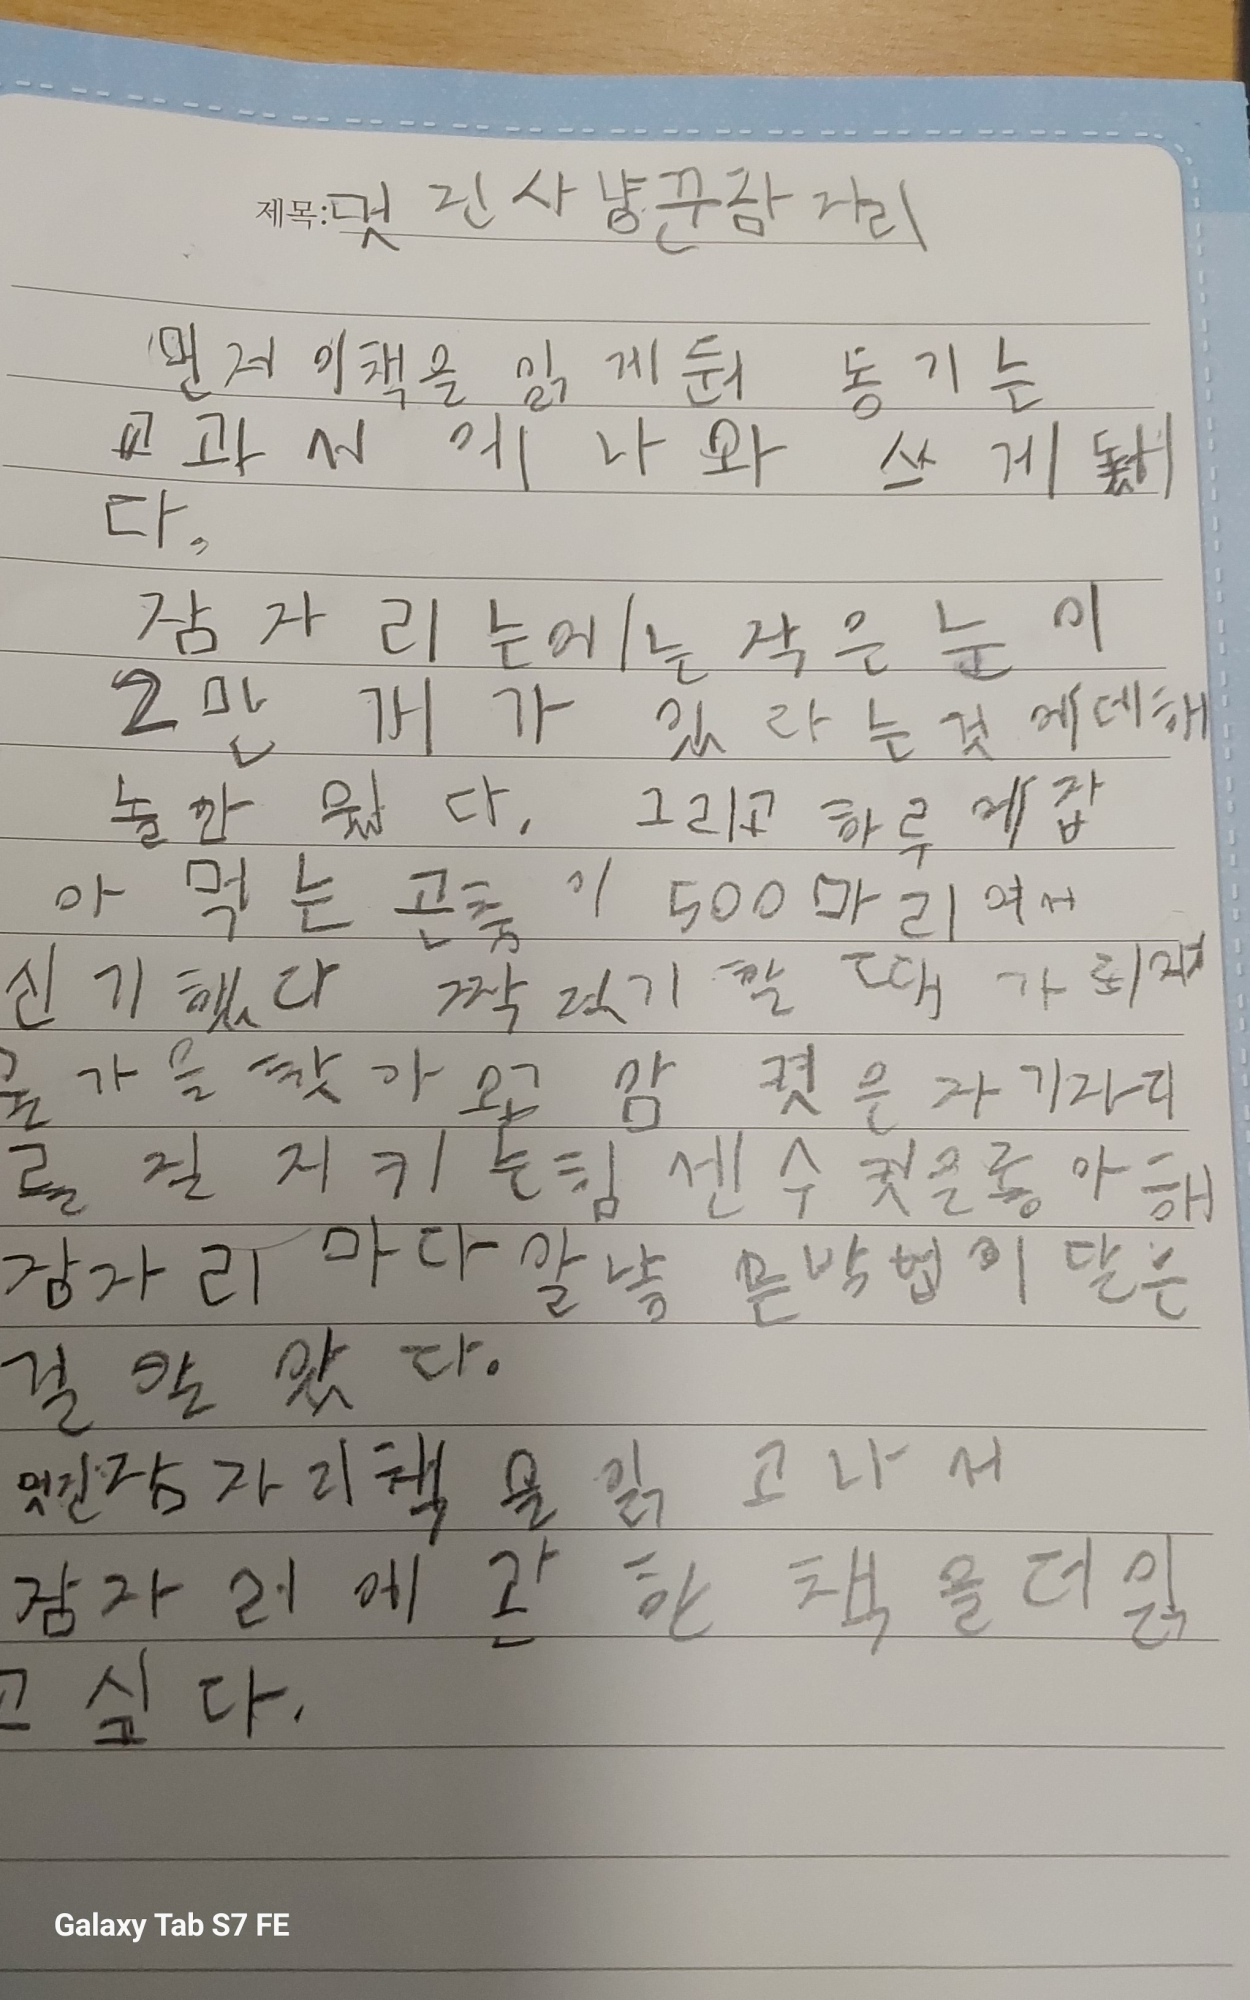 제목: 멋진 사냥꾼 잠자리
먼저 이 책을 읽게 된 동기는
교과서에 나와 쓰게
다.
잠자리 눈에는 작은 눈이
2만 개가 있 라는 것에 데해
놀라 웠다. 그리고 하루에 잡
아 먹는 곤충이 500마리여서
신기했다 짝 짓기 할 때가
물가을 찾가 오고 암 컷은 자기자리
를 잘 지키는 힘 센 수컷을 좋아해
잠자리 마다 알 낳 는 방법이 달은
걸 알 았다.
멋진 잠자리 책을 읽고 나서
잠자리에 관한 책을 더 읽
고 싶다.
Galaxy Tab S7 FE